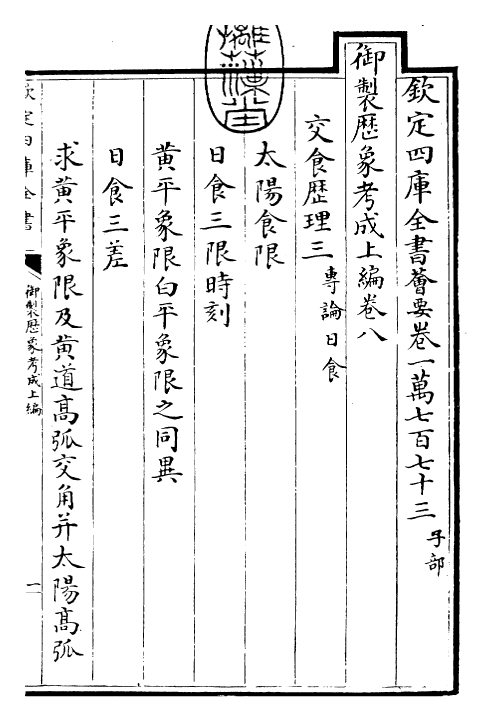 欽定四庫全書薈要卷一萬七百七十三 子部
御製歷象考成上編卷八
交食歷理三 專論日食
太陽食限
日食三限時刻
黃平象限白平象限之同異
日食三差
求黃平象限及黃道高弧交角并太陽高弧
欽定四庫全書
御製歷象考成上編
一